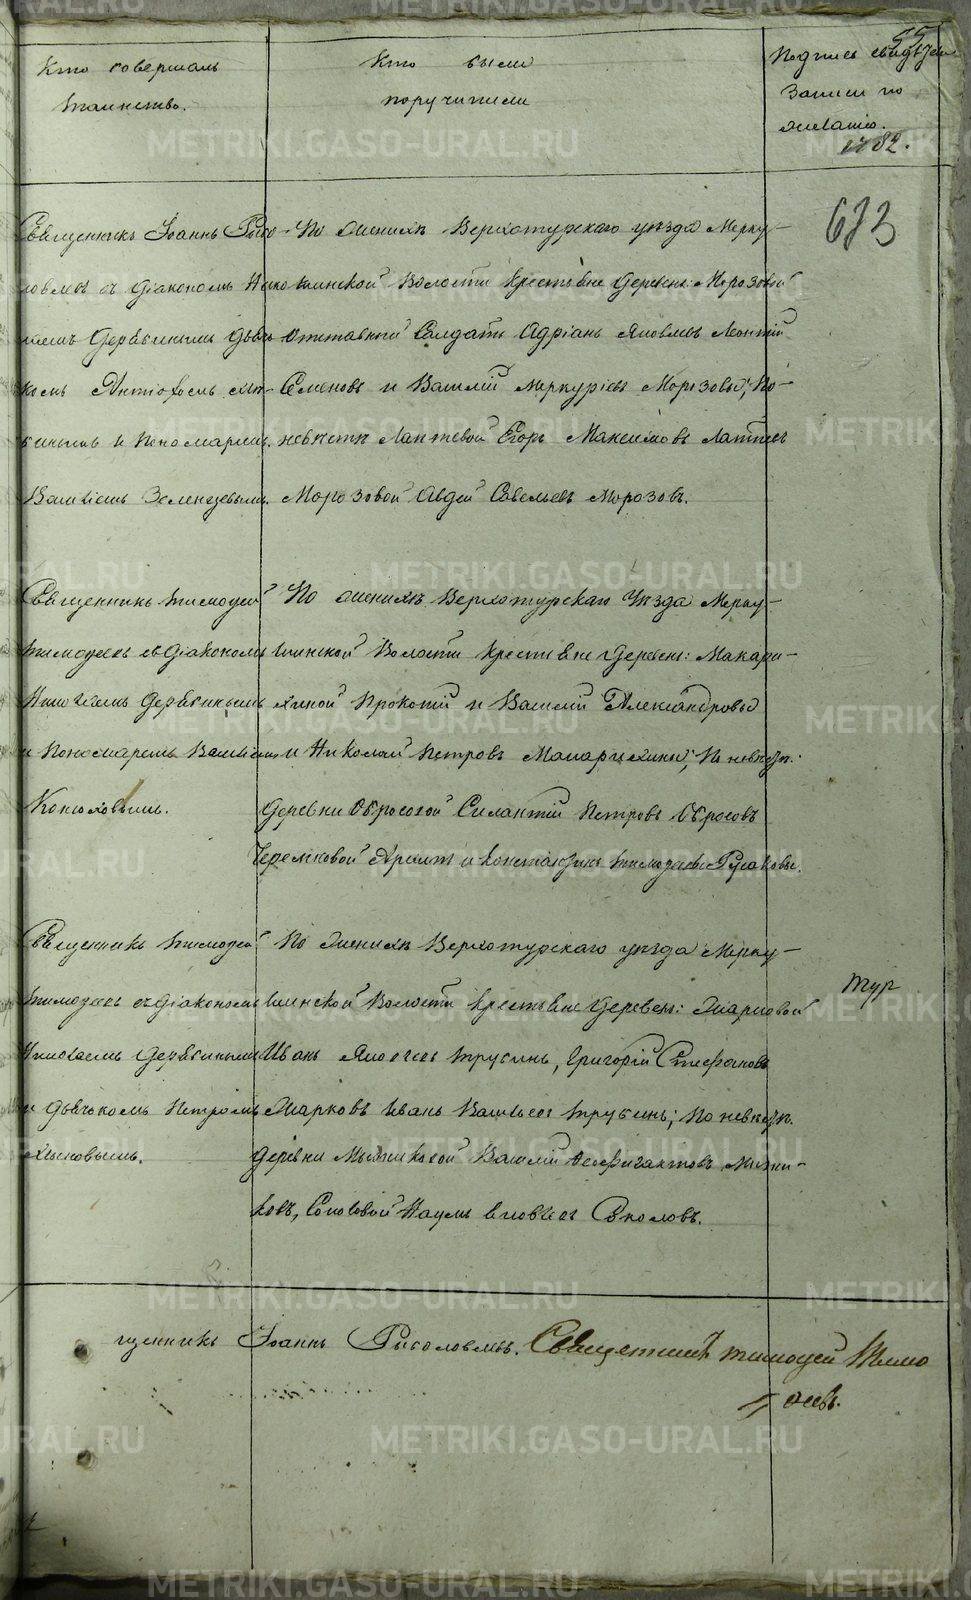 55
Кто совершалъ
таинство.
Кто были
поручители
Подпись свидѣтелей
записи по
желанію.
1782.
Священникъ Іоаннъ Рысо-
ловлевъ съ діакономъ Нико-
лаемъ Дерябинымъ дьяч-
комъ
и пономаремъ
Василіемъ Зеленцовымъ.
По женихѣ Верхотурскаго уѣзда Мерку-
шинской волости крестьяне деревень: Морозовой
отставной солдатъ Адріанъ Яковлевъ Леонтій
Семеновъ и Василій Меркурьевъ Морозовы; по
невѣстѣ Лаптевой Егоръ Максимовъ Лаптевъ
Морозовой Авдей Савельевъ Морозовъ.
673
Священникъ Тимофей
Тимофеевъ съ діакономъ
Николаемъ Дерябинымъ
и пономаремъ Василіемъ
Коноховымъ.
По женихѣ Верхотурскаго уѣзда Мерку-
шинской волости крестьяне деревень: Макари-
хиной Прокопій и Василій Александровы
и Николай Петровъ Макарихины; по невѣстѣ
деревни Обросовой Силантій Петровъ Обросовъ
и Константинъ Тимофеевы Русаковы.
Священникъ Тимофей
Тимофеевъ съ діакономъ
Николаемъ Дерябинымъ
и дьячкомъ Петромъ
По женихѣ Верхотурскаго уѣзда Мерку-
шинской волости крестьяне деревень: Марковой
Иванъ Яковлевъ Трубинъ, Григорій Стефановъ
Марковъ Иванъ Васильевъ Трубинъ; по невѣстѣ
деревни Мышкиной Василій
ковъ, Наумъ Соколовъ.
Тур
щенникъ Іоаннъ Рысоловлевъ. Священникъ Тимофей Тимо
феевъ.
METRIKI.GASO-URAL.RU